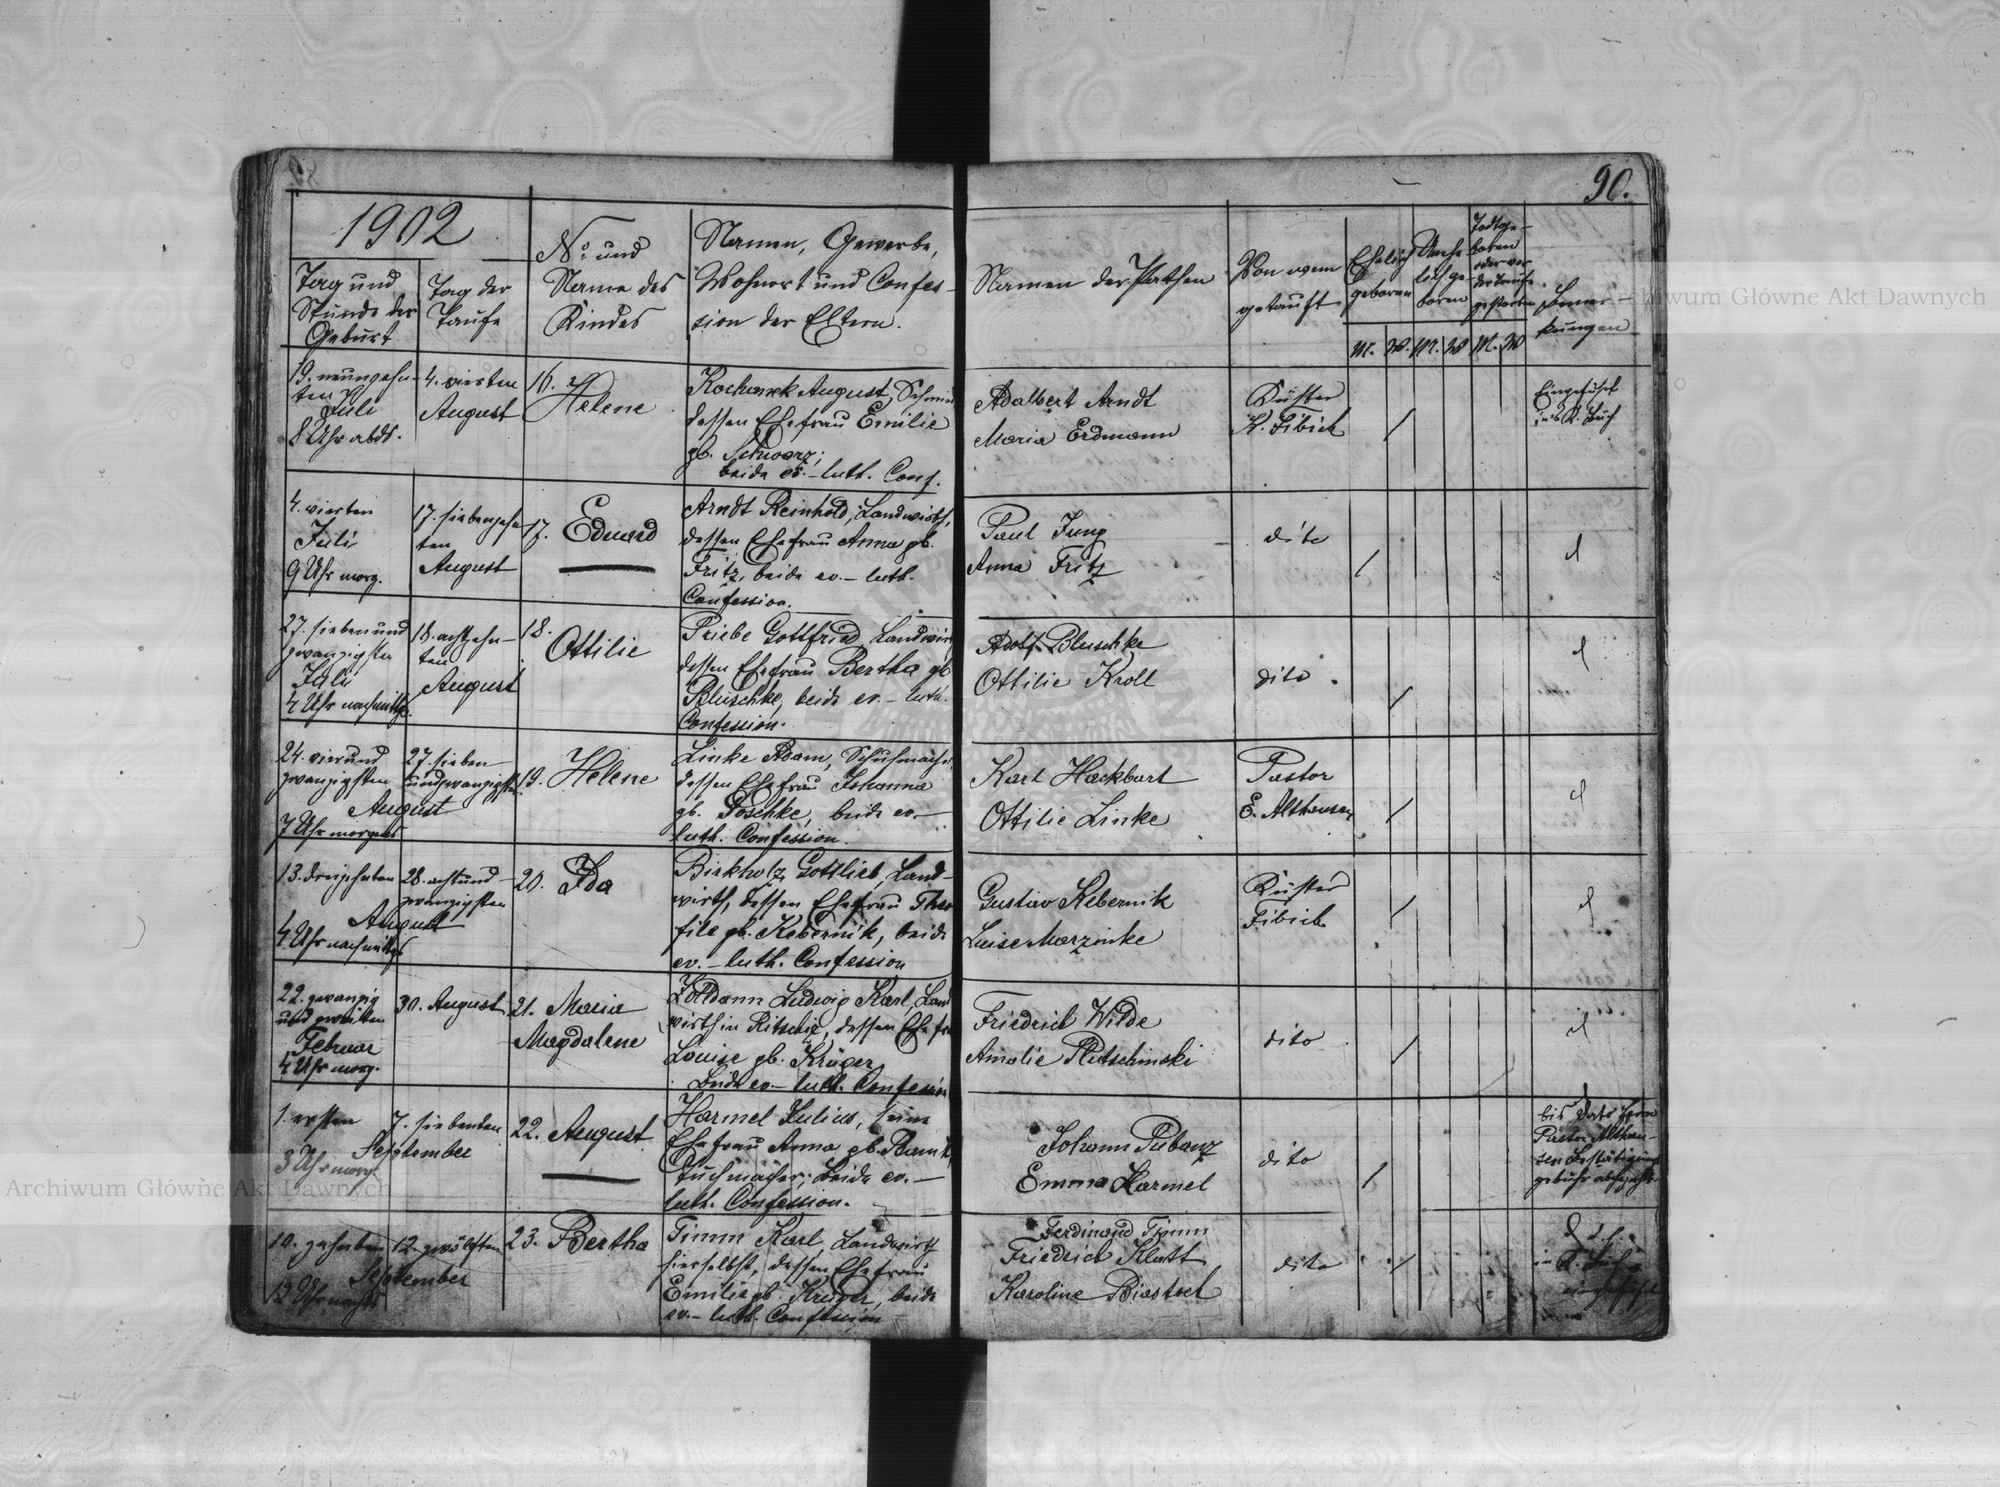 90.
1902
Tag und
Stunde der
Geburt
Tag der
Taufe
No. und
Name des
Kindes
Namen, Gewerbe,
Wohnort und Confes-
sion der Eltern.
Namen der Pathen
Von wem
getauft
Ehelich
geboren
Unehe-
lich ge-
boren
Todtge-
boren
oder vor
der Taufe
gestorben
Bemer-
kungen
M. W. M. W M. W
19. neunzehn-
ten
Juli
8 Uhr abds.
4. vierten
August
16.
Helene
August, Schmied
dessen Ehefrau Emilie
gb. Schwarz;
beide ev.-luth. Conf.
Adalbert Arndt
Maria Erdmann
Küster
K. Fibich
Eingetragen
ins K. Buch
4. vierten
Juli
9 Uhr morg.
17. siebenzehn
ten
August
17. Eduard
Arndt Reinhold, Landwirth,
dessen Ehefrau Anna gb.
Fritz, beide ev.-luth.
Confession.
Paul Jung
Anna Fritz
dito
27. sieben und
zwanzigsten
Juli
4 Uhr nachmittgs.
18. achtzehn-
ten
August
18.
Ottilie
Priebe Gottfried Landwirt
dessen Ehefrau Bertha gb
Bluschke, beide ev.-luth.
Confession.
Adolf Bluschke
Ottilie Kroll
dito
24. vierund
zwanzigsten
27. sieben-
undzwanzigsten
August
7 Uhr morgens
19. Helene
Linke Adam, Schuhmacher
dessen Ehefrau Johanna
gb. Poschke, beide ev.-
luth. Confession.
Karl Hackbart
Ottilie Linke
Pastor
E. Althausen
13. dreizehnten
28. achtund-
zwanzigsten
August
4 Uhr nachmittgs
20. Ida
Birkholz Gottlieb, Land-
wirth, dessen Ehefrau Theo
file gb. Kebernik, beide
ev.-luth. Confession
Gustav Kebernik
Luise Marzinke
Küster
Fibich
22. zwanzig
und zweiten
Februar
4 Uhr morg.
30. August
21. Maria
Magdalene
Ludwig Karl, Land
wirth in Ritschitz, dessen Ehefr
Louise gb. Krüger
beide ev.-luth. Confession
Friedrich Wilde
Amalie Plutschinski
dito
1. ersten
7. siebenten
September
3 Uhr morg.
22. August
Harmel Julius, seine
Ehefrau Anna gb.
Tuchmacher; beide ev.-
luth. Confession.
Johann Pubanz
Emma Harmel
dito
bis dato Herrn
Pastor Althau-
sen Bestätigungs
gebühr
10. zehnten
12. zwölften
September
12 Uhr nachts
23. Bertha
Timm Karl, Landwirth
hierselbst, dessen Ehefrau
Emilie gb. Krüger, beide
ev.-luth. Confession
Ferdinand Timm
Friedrich Klatt
Karoline Biastoch
dito
in K. Buch
Archiwum Główne Akt Dawnych
Archiwum Główne Akt Dawnych